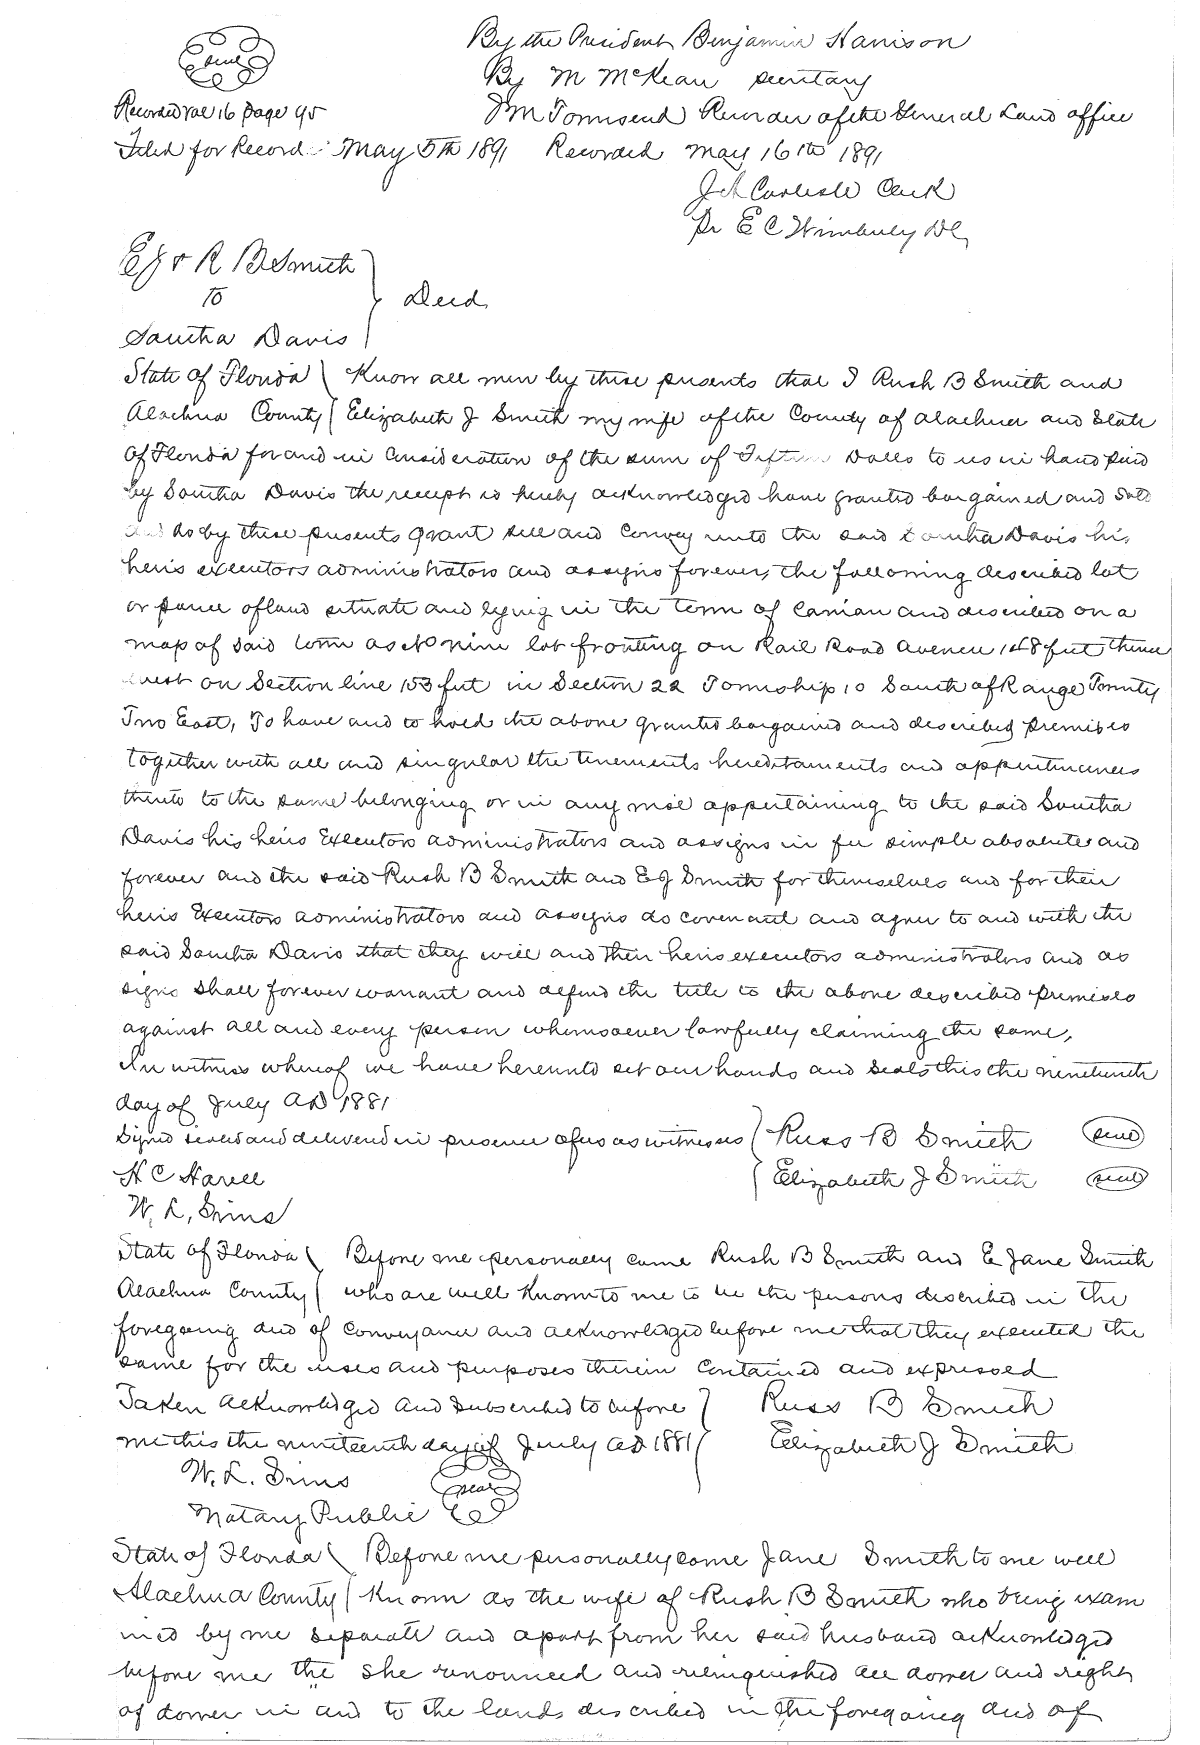 By the President Benjamin Harrison
Seal
By M McKean Secretary
Recorded vol 16 page 95
J M Townsend Recorder of the General Land office
Filed for Record May 5th 1891 Recorded May 16th 1891
J A Carlisle Clerk
Pr E C Wimberley DC
E J & R B Smith
To
Deed
Santha Davis
State of Florida ( Know all men by these presents that I Rush B Smith and
Alachua County ( Elizabeth J Smith my wife of the County of Alachua and State
Of Florida for and in Consideration of the sum of Fifteen Dolls to us in hand paid
by Santha Davis the receipt is hereby acknowledged have granted bargained and sold
and do by these presents grant sell and Convey unto the said Santha Davis his
heirs executors administrators and assigns forever, the following described lot
or parcel of land situate and lying in the town of and described on a
map of said town as No nine lot fronting on Rail Road Avenue 148 feet thence
west on Section line 153 feet in Section 22 Township 10 South of Range Twenty
Two East, To have and to hold the above granted bargained and described premises
together with all and singular the tenements hereditaments and appurtinances
thereto to the same belonging or in any wise appertaining to the said Santha
Davis his heirs Executors administrators and assigns in fee simple absolute and
forever and the said Rush B Smith and E J Smith for themselves and for their
heirs Executors administrators and assigns do covenant and agree to and with the
said Santha Davis that they will and their heirs executors administrators and as
signs shall forever warrant and defend the title to the above described premises
against all and every person whomsoever lawfully claiming the same,
In witness whereof we have hereunto set our hands and seals this the nineteenth
day of July AD 1881
Signed sealed and delivered in presence of us as witnesses ( Russ B Smith seal
H C Harell ( Elizabeth J Smith seal
W. L. Sims
State of Florida ( Before me personally came Rush B Smith and E Jane Smith
Alachua County ( who are well Known to me to be the persons described in the
foregoing deed of Conveyance and acknowledged before me that they executed the
same for the uses and purposes therein Contained and expressed
Taken acknowledged and subscribed to before ) Russ B Smith
me this the nineteenth day of July AD 1881 ( Elizabeth J Smith
W. L. Sims seal
Notary Public
State of Florida ( Before me personally came Jane Smith to me well
Alachua County ( Known as the wife of Rush B Smith who being exam
ined by me separate and apart from her said husband acknowledged
before me the she renounced and relinquished all dower and right
of dower in and to the lands described in the foregoing deed of